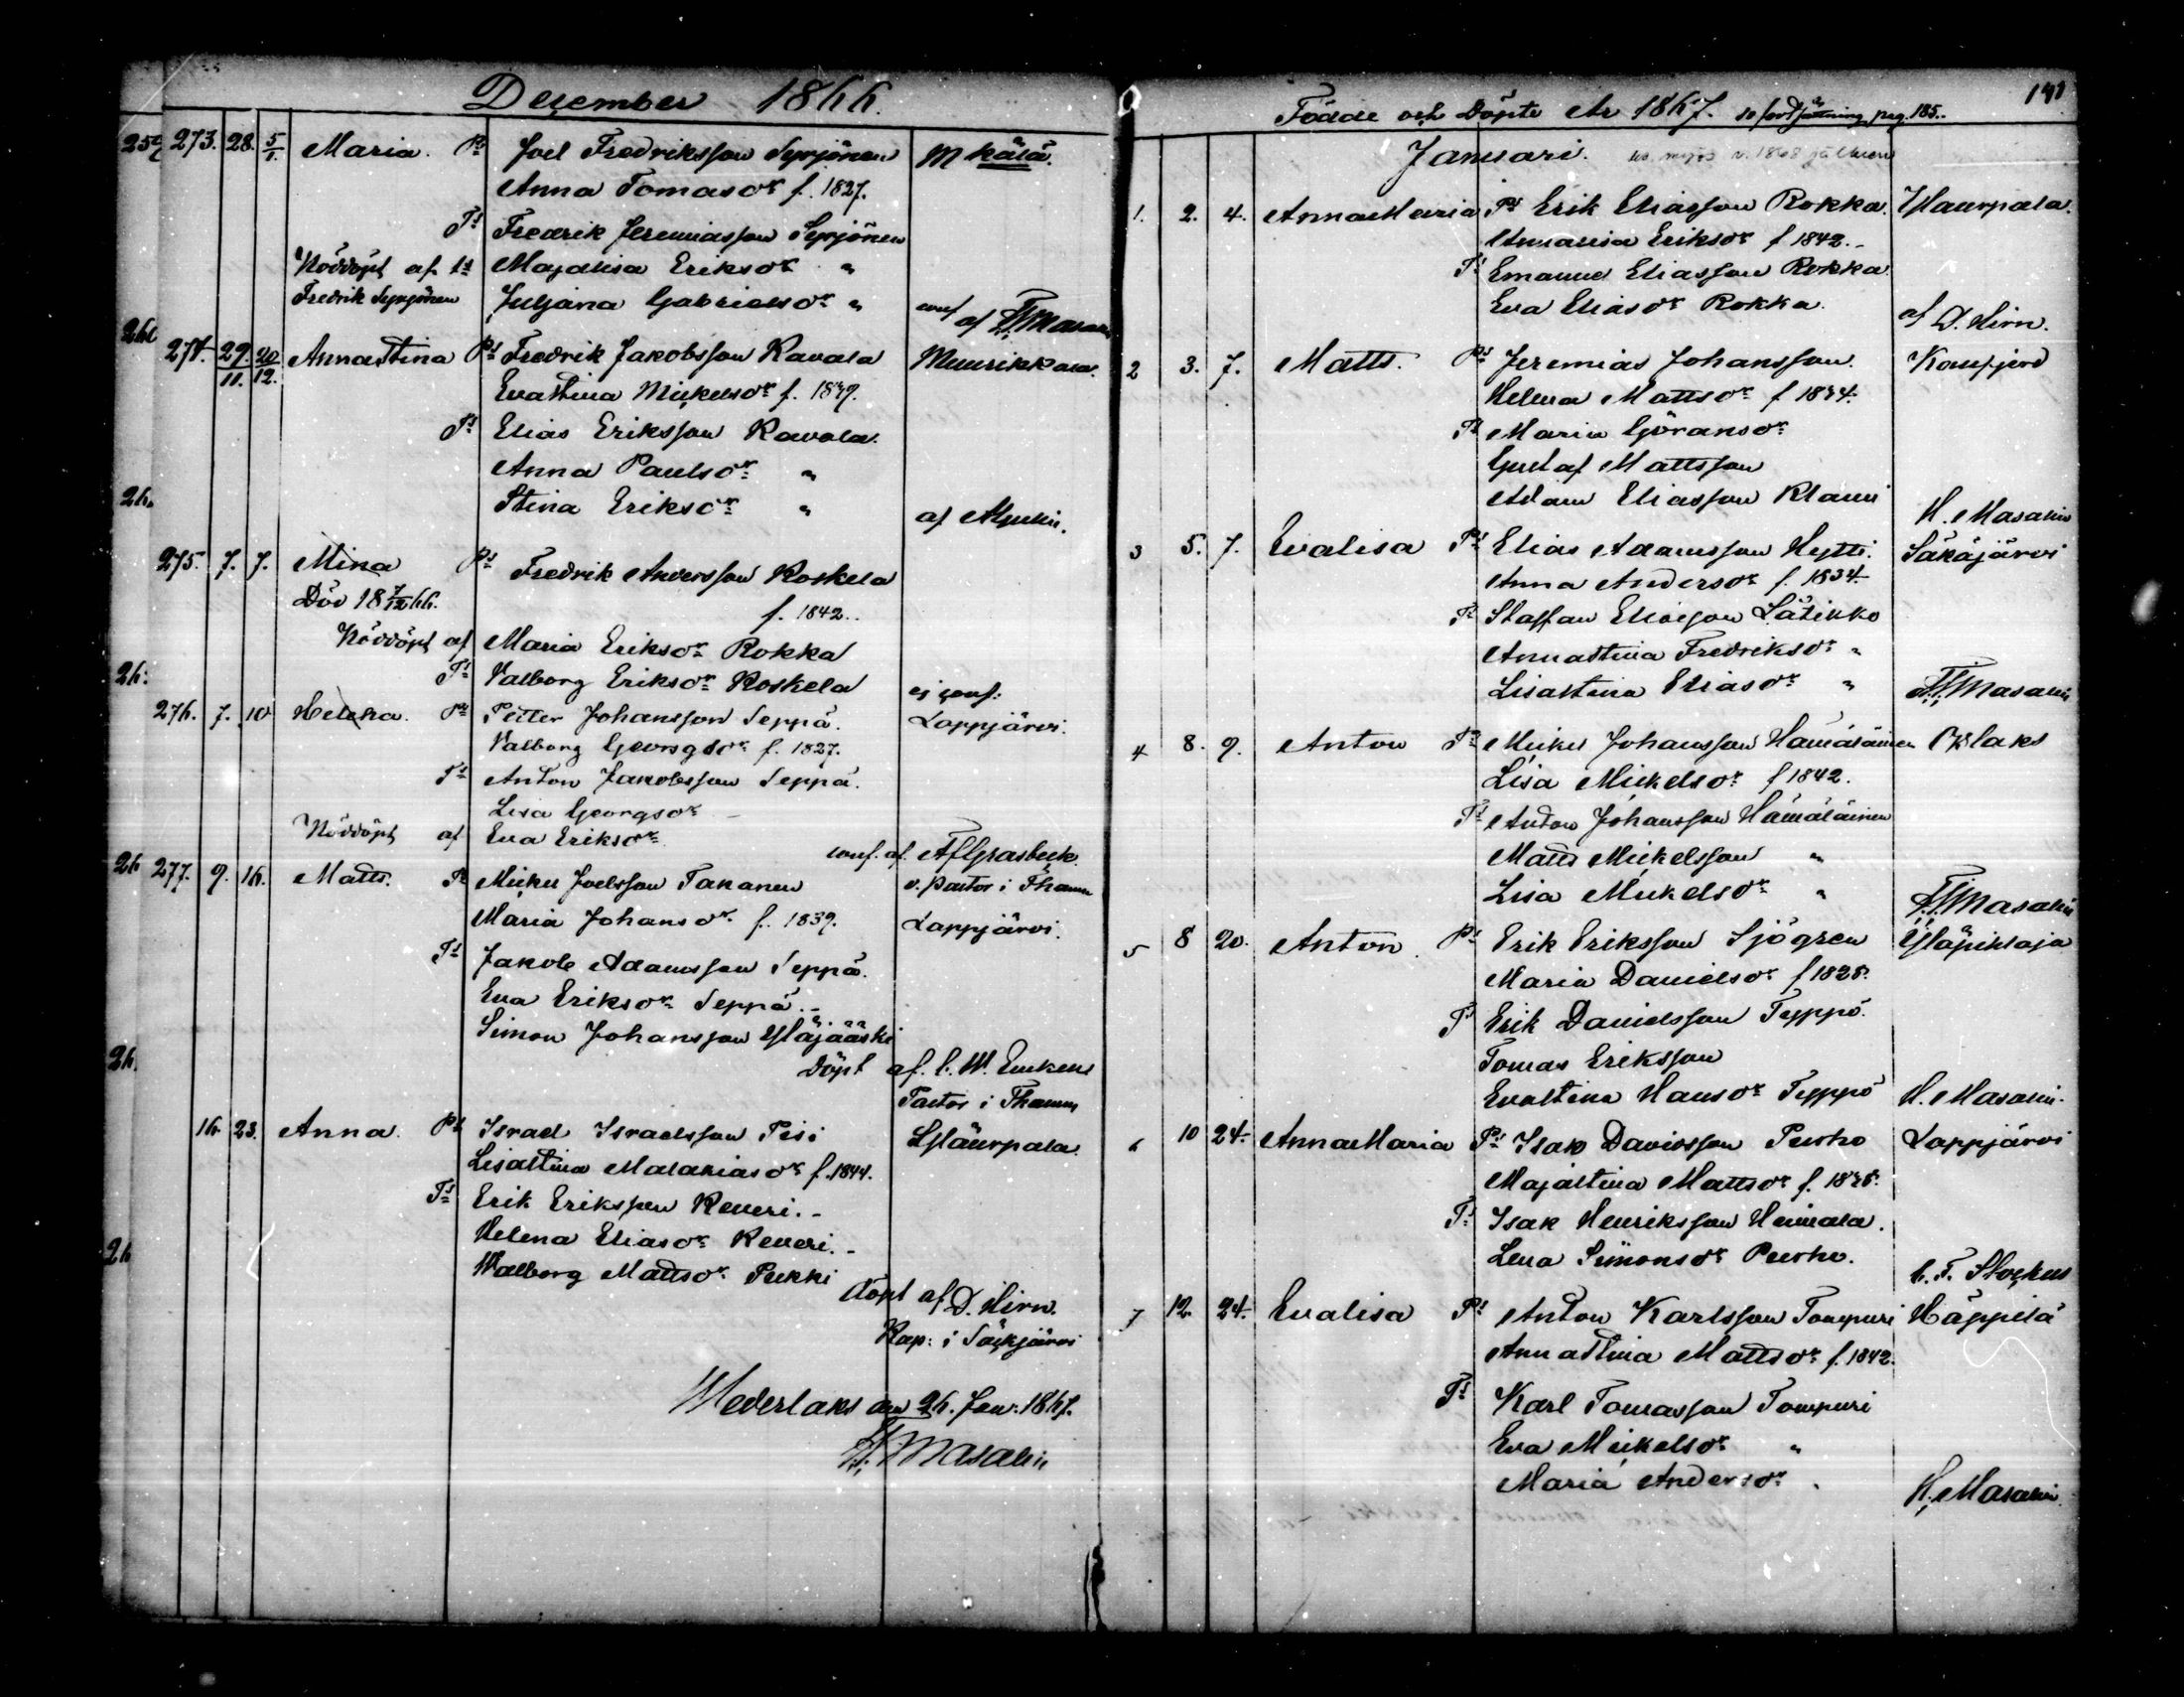 December 1866.
273. 28. 5/1. Maria. Ps Joel Fredriksson Syrjönen M kälä.
Anna Tomasdr f. 1827.
Ts Fredrik Jeremiasson Syrjönen
Nöddöpt af ts Majalisa Eriksdr "
Fredrik Syrjönen Juljana Gabrielsdr "
conf af H. Masalin
274. 29/11. 20/12. Annastina Ps Fredrik Jakobsson Kavala Muurikkala.
Evastina Mickelsdr f. 1839.
Ts Elias Eriksson Kavala.
Anna Paulsdr "
Stina Eriksdr " af
275. 7. 7. Mina Ps Fredrik Andersson Koskela
Död 18 7/12 66. f. 1842..
Nöddöpt af Maria Eriksdr Rokka
Ts Valborg Eriksdr Koskela ej conf:
276. 7. 10 Helena. Ps Petter Johansson Seppä. Lappjärvi.
Valborg Georgsdr f. 1827.
Ts Anton Jakobsson Seppä.
Lisa Georgsdr
Nöddöpt af Eva Eriksdr
conf. af. Grasbeck.
277. 9. 16. Matts. Ps Mickel Joelsson Takanen v. pastor i Thamm
Maria Johansdr f. 1839. Lappjärvi.
Ts Jakob Adamsson Seppä.
Eva Eriksdr Seppä.
Simon Johansson Yläjääski
Döpt af. C. W.
Pastor i Thamm
16. 23. Anna. Ps Israel Israelsson Pesi Yläurpala.
Lisastina Malakiasdr f. 1844.
Ts Erik Eriksson Reveri.
Helena Eliasdr Reveri.
Walborg Mattsdr Pukki
döpt af D. Hirn.
Kap: i Säkjärvi
Wederlaks den 26. Jan. 1867.
H. Masalin
Födde och Döpte År 1867. se fortsättning pag. 185.. 141
Januari. ks. myös v. 1868 jälkeen
1. 2. 4. AnnaMaria Ps Erik Eliasson Rokka. Yläurpala.
Annalisa Eriksdr f 1842.
Ts Emanuel Eliasson Rokka
Eva Eliasdr Rokka. af D. Hirn.
2 3. 7. Matts. Ps Jeremias Johansson.
Helena Mattsdr f 1834.
Ts Maria Göransdr
Gustaf Mattsson
Adam Eliasson Klami H. Masalin
3 5. 7. Evalisa Ps Elias Adamsson Hytti. Säkäjärvi
Anna Andersdr f. 1834.
Ts Staffan Eliasson Lätikko
Annastina Fredriksdr "
Lisastina Eliasdr " H. Masalin
4 8. 9. Anton Ps Mickel Johansson Hämäläinen
Lisa Mickelsdr f 1842.
Ts Anton Johansson Hämäläinen
Matts Mickelsson "
Lisa Mickelsdr " H. Masalin
5 8 20. Anton. Ps Erik Eriksson Sjögren Yläpihlaja
Maria Danielsdr f 1828.
Ts Erik Danielsson Teppo.
Tomas Eriksson
Evastina Hansdr Teppo H. Masalin.
6 10 24. AnnaMaria Ps Isak Davidsson Purho Lappjärvi
Majastina Mattsdr f. 1838.
Ts Isak Henriksson Heimala.
Lena Simonsdr Purho. C. F. Stockus
7 12. 24. Evalisa Ps Anton Karlsson Tompuri Häppilä
Annastina Mattsdr f. 1842.
Ts Karl Tomasson Tompuri
Eva Mickelsdr "
Maria Andersdr . H. Masalin